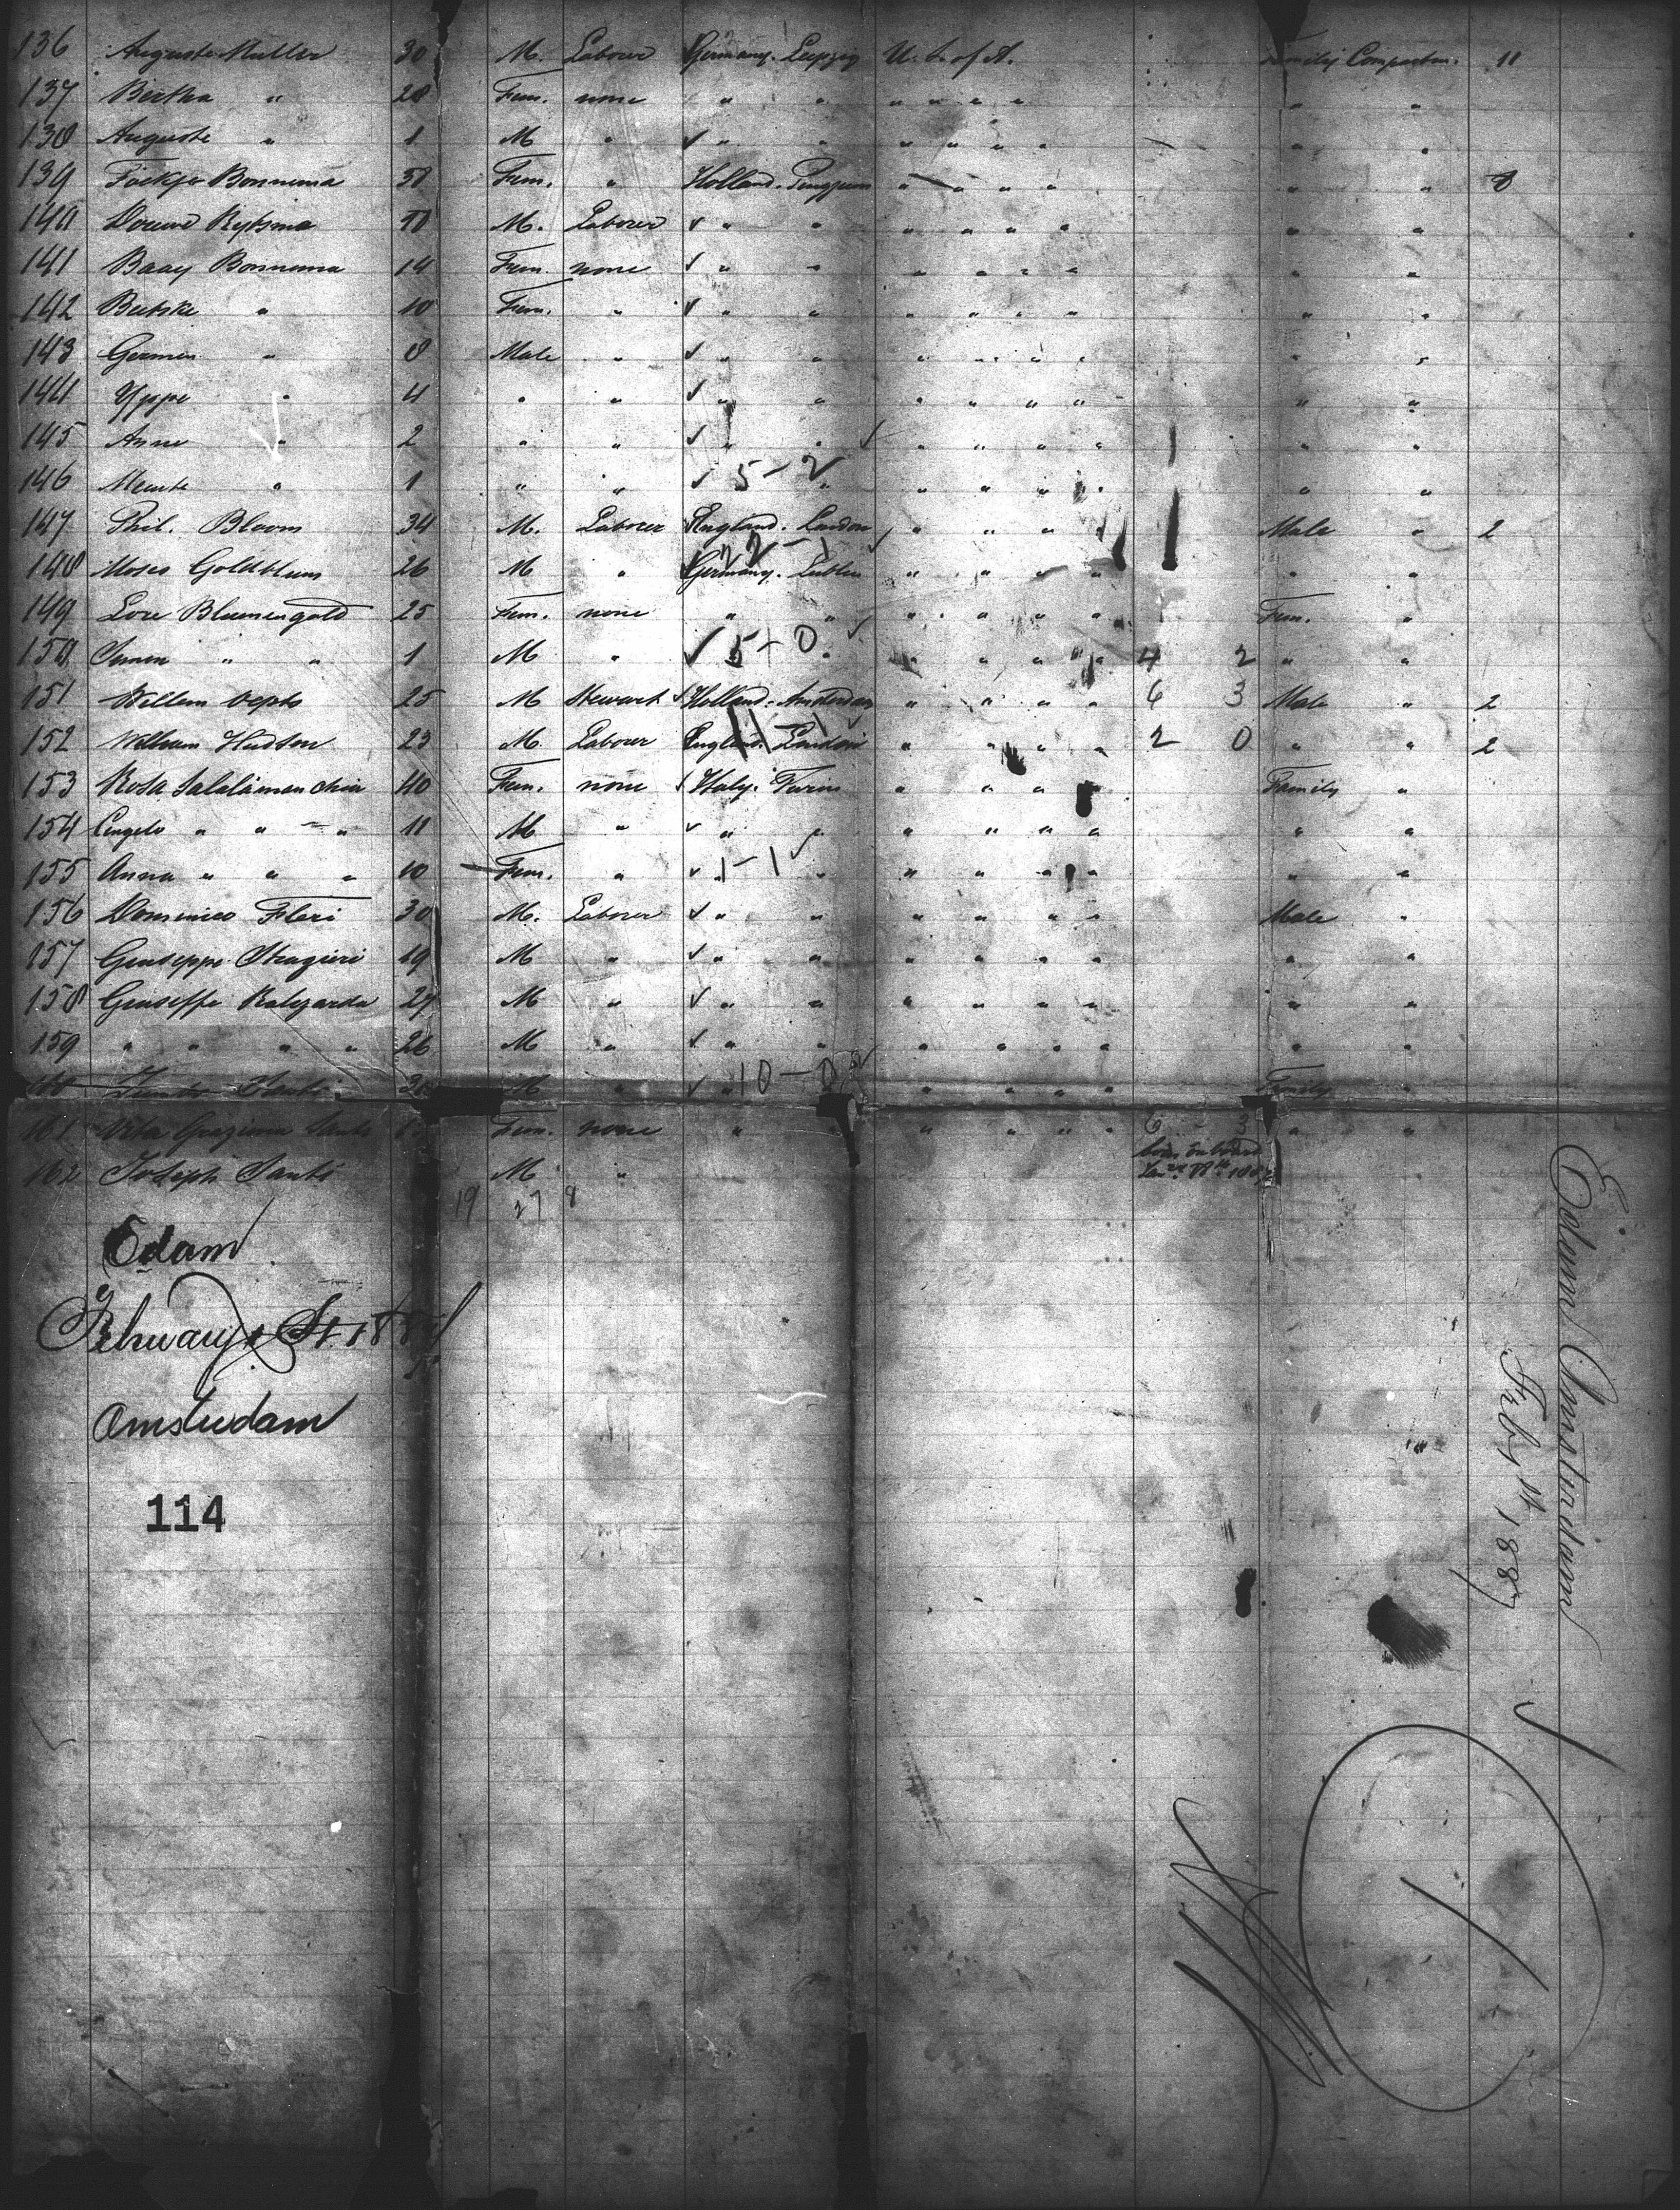 136 Auguste Muller 30 M. Labourer Germany. Leipzig U. S. of A. Family Compartm. 11
137 Bertha " 28 Fem. none " " " " " " " "
138 Auguste " 1 M " ✓ " " " " " " " "
139 Foekje Bonnema 38 Fem. " Holland. Pingjum " " " " " " 8
140 Douwe M. Labourer ✓ " " " " " " " "
141 Baay Bonnema 14 Fem. none ✓ " " " " " " " "
142 Betske " 10 Fem. " ✓ " " " " " " " "
143 German " 8 Male " ✓ " " " " " " " "
144 Yppe " 4 " " ✓ " " " " " " " "
145 Anne " 2 " " ✓ " " ✓ " " " " " "
146 Meinte " 1 " " ✓ 5-2 " " " " " " "
147 Phil. Bloom 34 M. Labourer England. London ✓ " " " " Male " 2
148 Moses Goldblum 26 M " Germany. Lublin " " " " " "
149 Lore Blumengold 25 Fem. none " " " " " " Fem. "
150 " " 1 M " ✓ 5-0 ✓ " " " " " 4 2 " "
151 Willem 25 M Stewart ✓ Holland. Amsterdam " " " " 6 3 Male " 2
152 William Hudson 23 M. Labourer England. London " " " " 2 0 " " 2
153 Rosa 40 Fem. none ✓ Italy. Turin " " " " Family "
154 Angelo " " " 11 M " ✓ " " " " " " " "
155 Anna " " " 10 Fem. " ✓ " 1-1 ✓ " " " " " " "
156 Domenico Fleri 30 M. Labourer ✓ " " " " " " Male "
157 Giuseppe Strazieri 19 M " ✓ " " " " " " " "
158 Giuseppe 27 M " ✓ " " " " " " " "
159 " " " " 26 M " ✓ " " " " " " " "
160 Santi M " ✓ " 10-0 ✓ " " " " Family "
161 Vita Graziana Santi Fem. none " " " " " " 6 3 " "
162 Joseph Santi M " born on board
19 27 8
Edam
February 1 St. 1887
Amsterdam
114
Edam Amsterdam
Feby 1st 1887